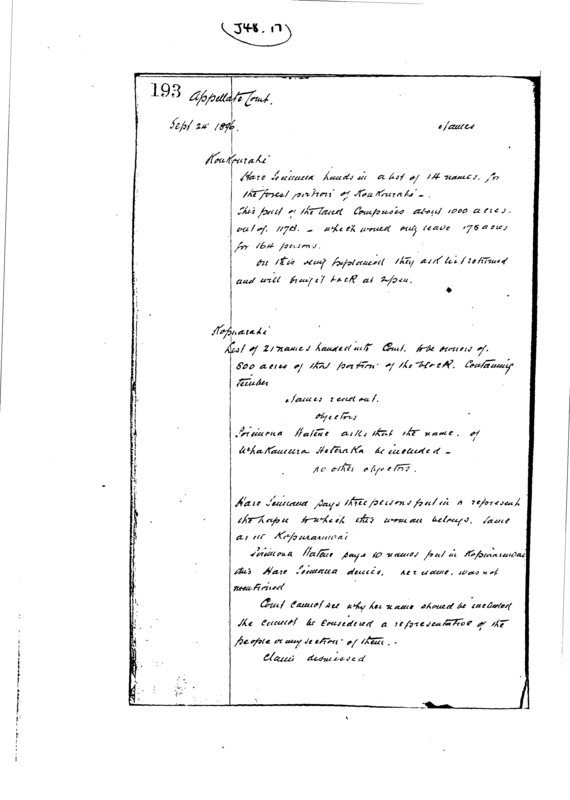 (J48. 17)
193 Appellate Court.
Sept 24 1896.
Names
Koukourahi
Hare hands in a list of 14 names. for
the forest portion of Koukourahi.
This part of the land Comprises about 1000 acres.
out of 1178. - which would only leave 178 acres
for 164 persons.
on this being explained they ask list returned
and will bring it back at 2 p.m.
Kopuarahi
List of 21 names handed into Court. to be owners of.
500 acres of that portion of the block. Containing
Timber
Names read out.
Objectors
Hatene asks that the name. of
Whakameera Hoteraka be included -
no other objectors.
Hare says three persons put in to represent
the hapu to which this woman belongs. Same
as in
Hatene says 10 names put in
this Hare denies. her name. was not
mentioned
Court cannot see why her name should be included
she cannot be considered a representative of the
people or any section of them. -
Claim dismissed